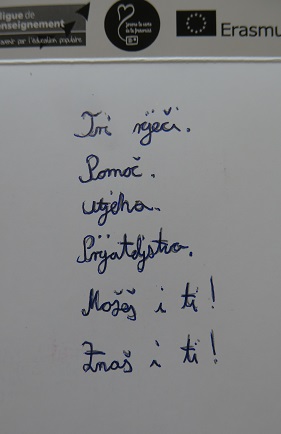 ligue de
l'enseignement
avenir par l'éducation populaire
jouons la carte
de la fraternité
Erasmu
Tri riječi.
Pomoć.
utjeha.
Prijateljstvo.
Možeš i ti!
Znaš i ti!